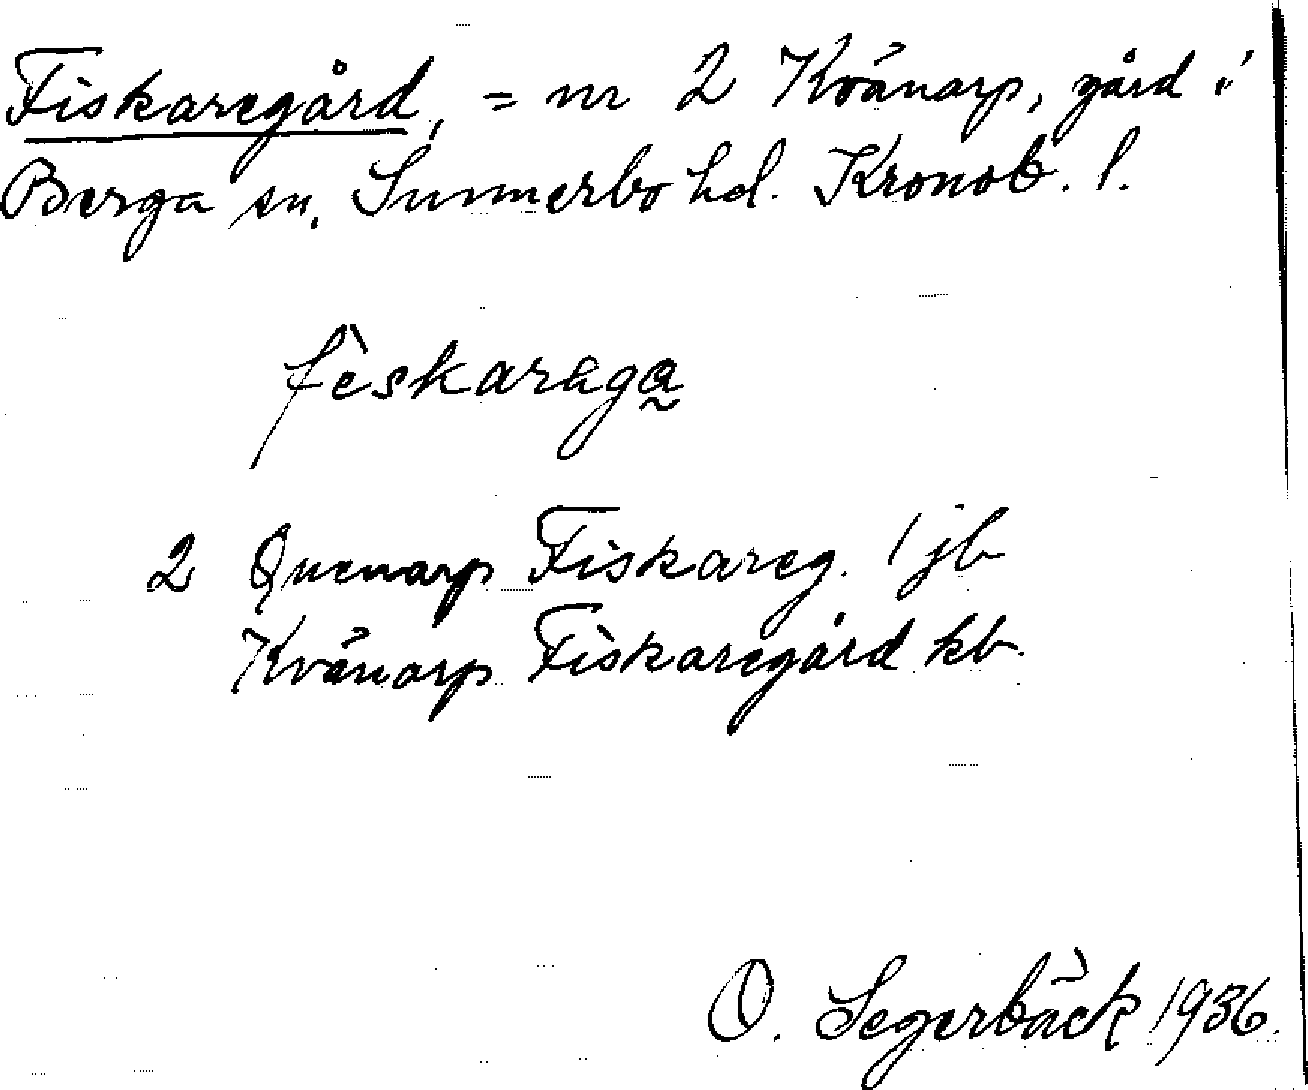 Fiskaregård, = nr 2 Kvänarp, gård i
Berga sn. Sunnerbo hd. Kronob. l.
fèskaraga̰
2 Quenarp Fiskareg. / jb
Kvänarp Fiskaregård kb.
O. Segerbäck 1936.